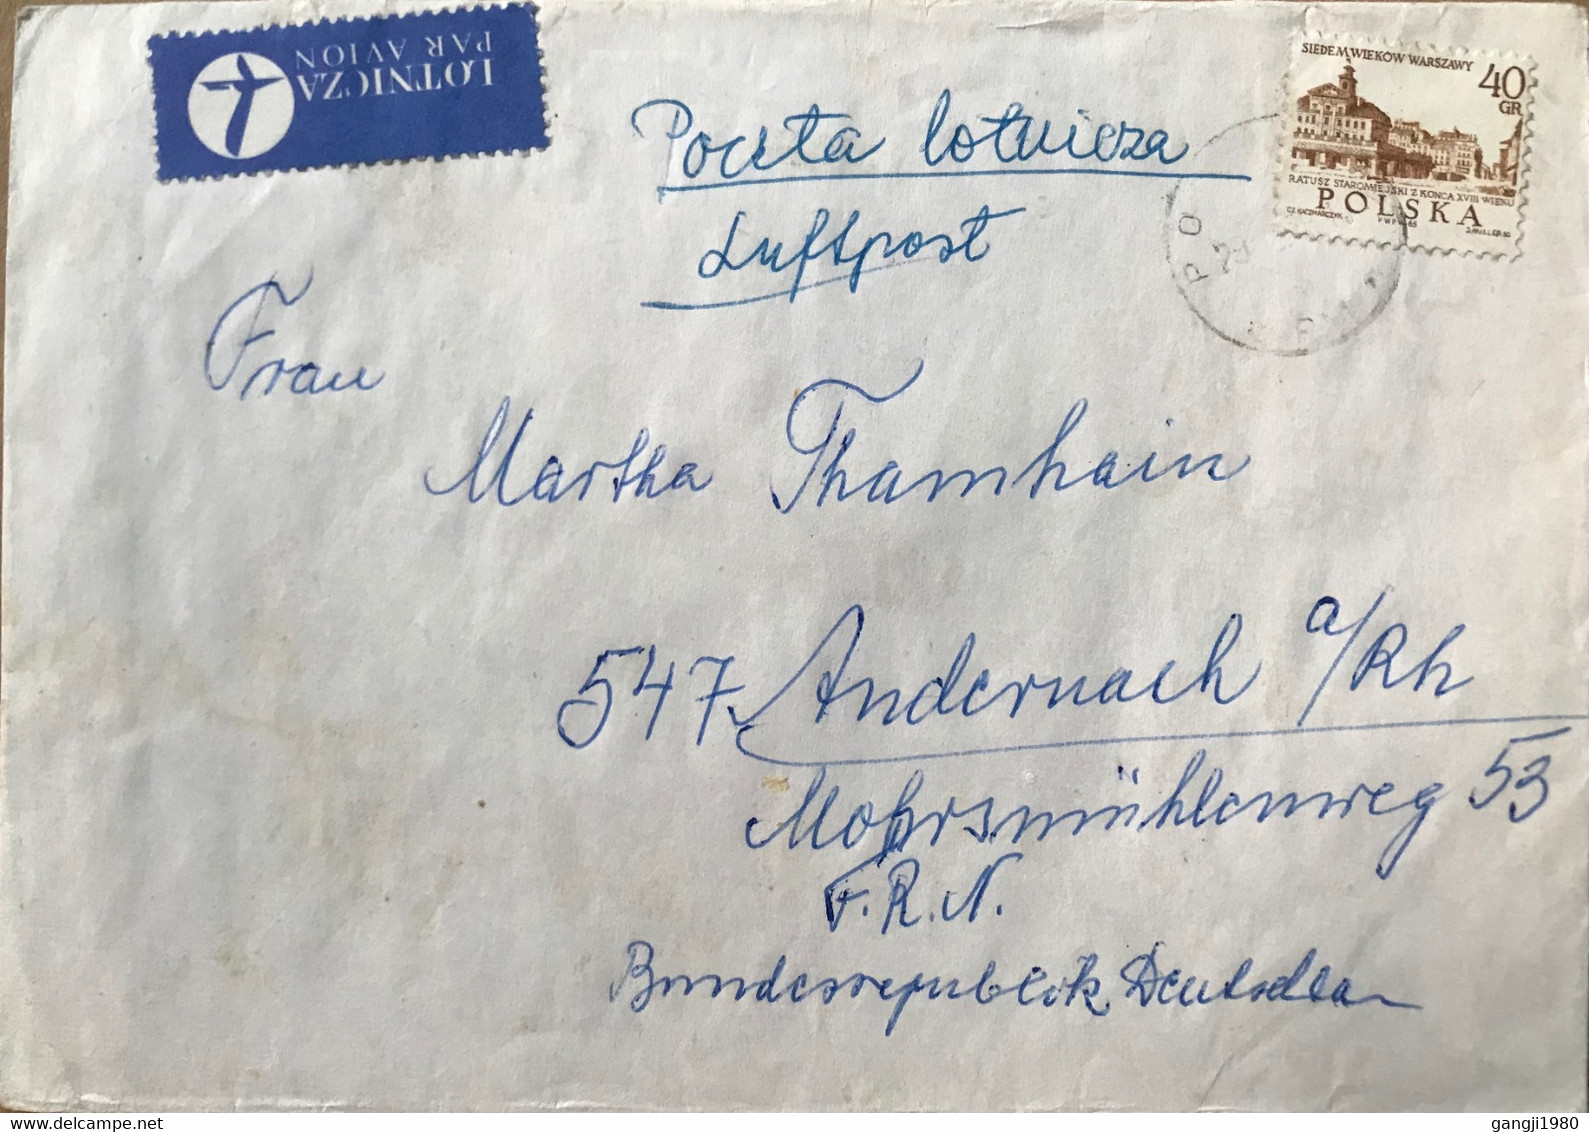 LOTNICZA
PAR AVION
SIEDEM WIEKÓW WARSZAWY
40
GR
RATUSZ STAROMIEJSKI Z KOŃCA XVIII WIEKU
POLSKA
CZ. KACZMARCZYK PWPW 65 J. MILLER SC
Poczta lotnicza
Luftpost
Frau
Martha Thamhain
547 Andernach a/Rh
Mohrsmühlenweg 53
F.R.N.
Bundesrepublik Deutschlan
gangji1980